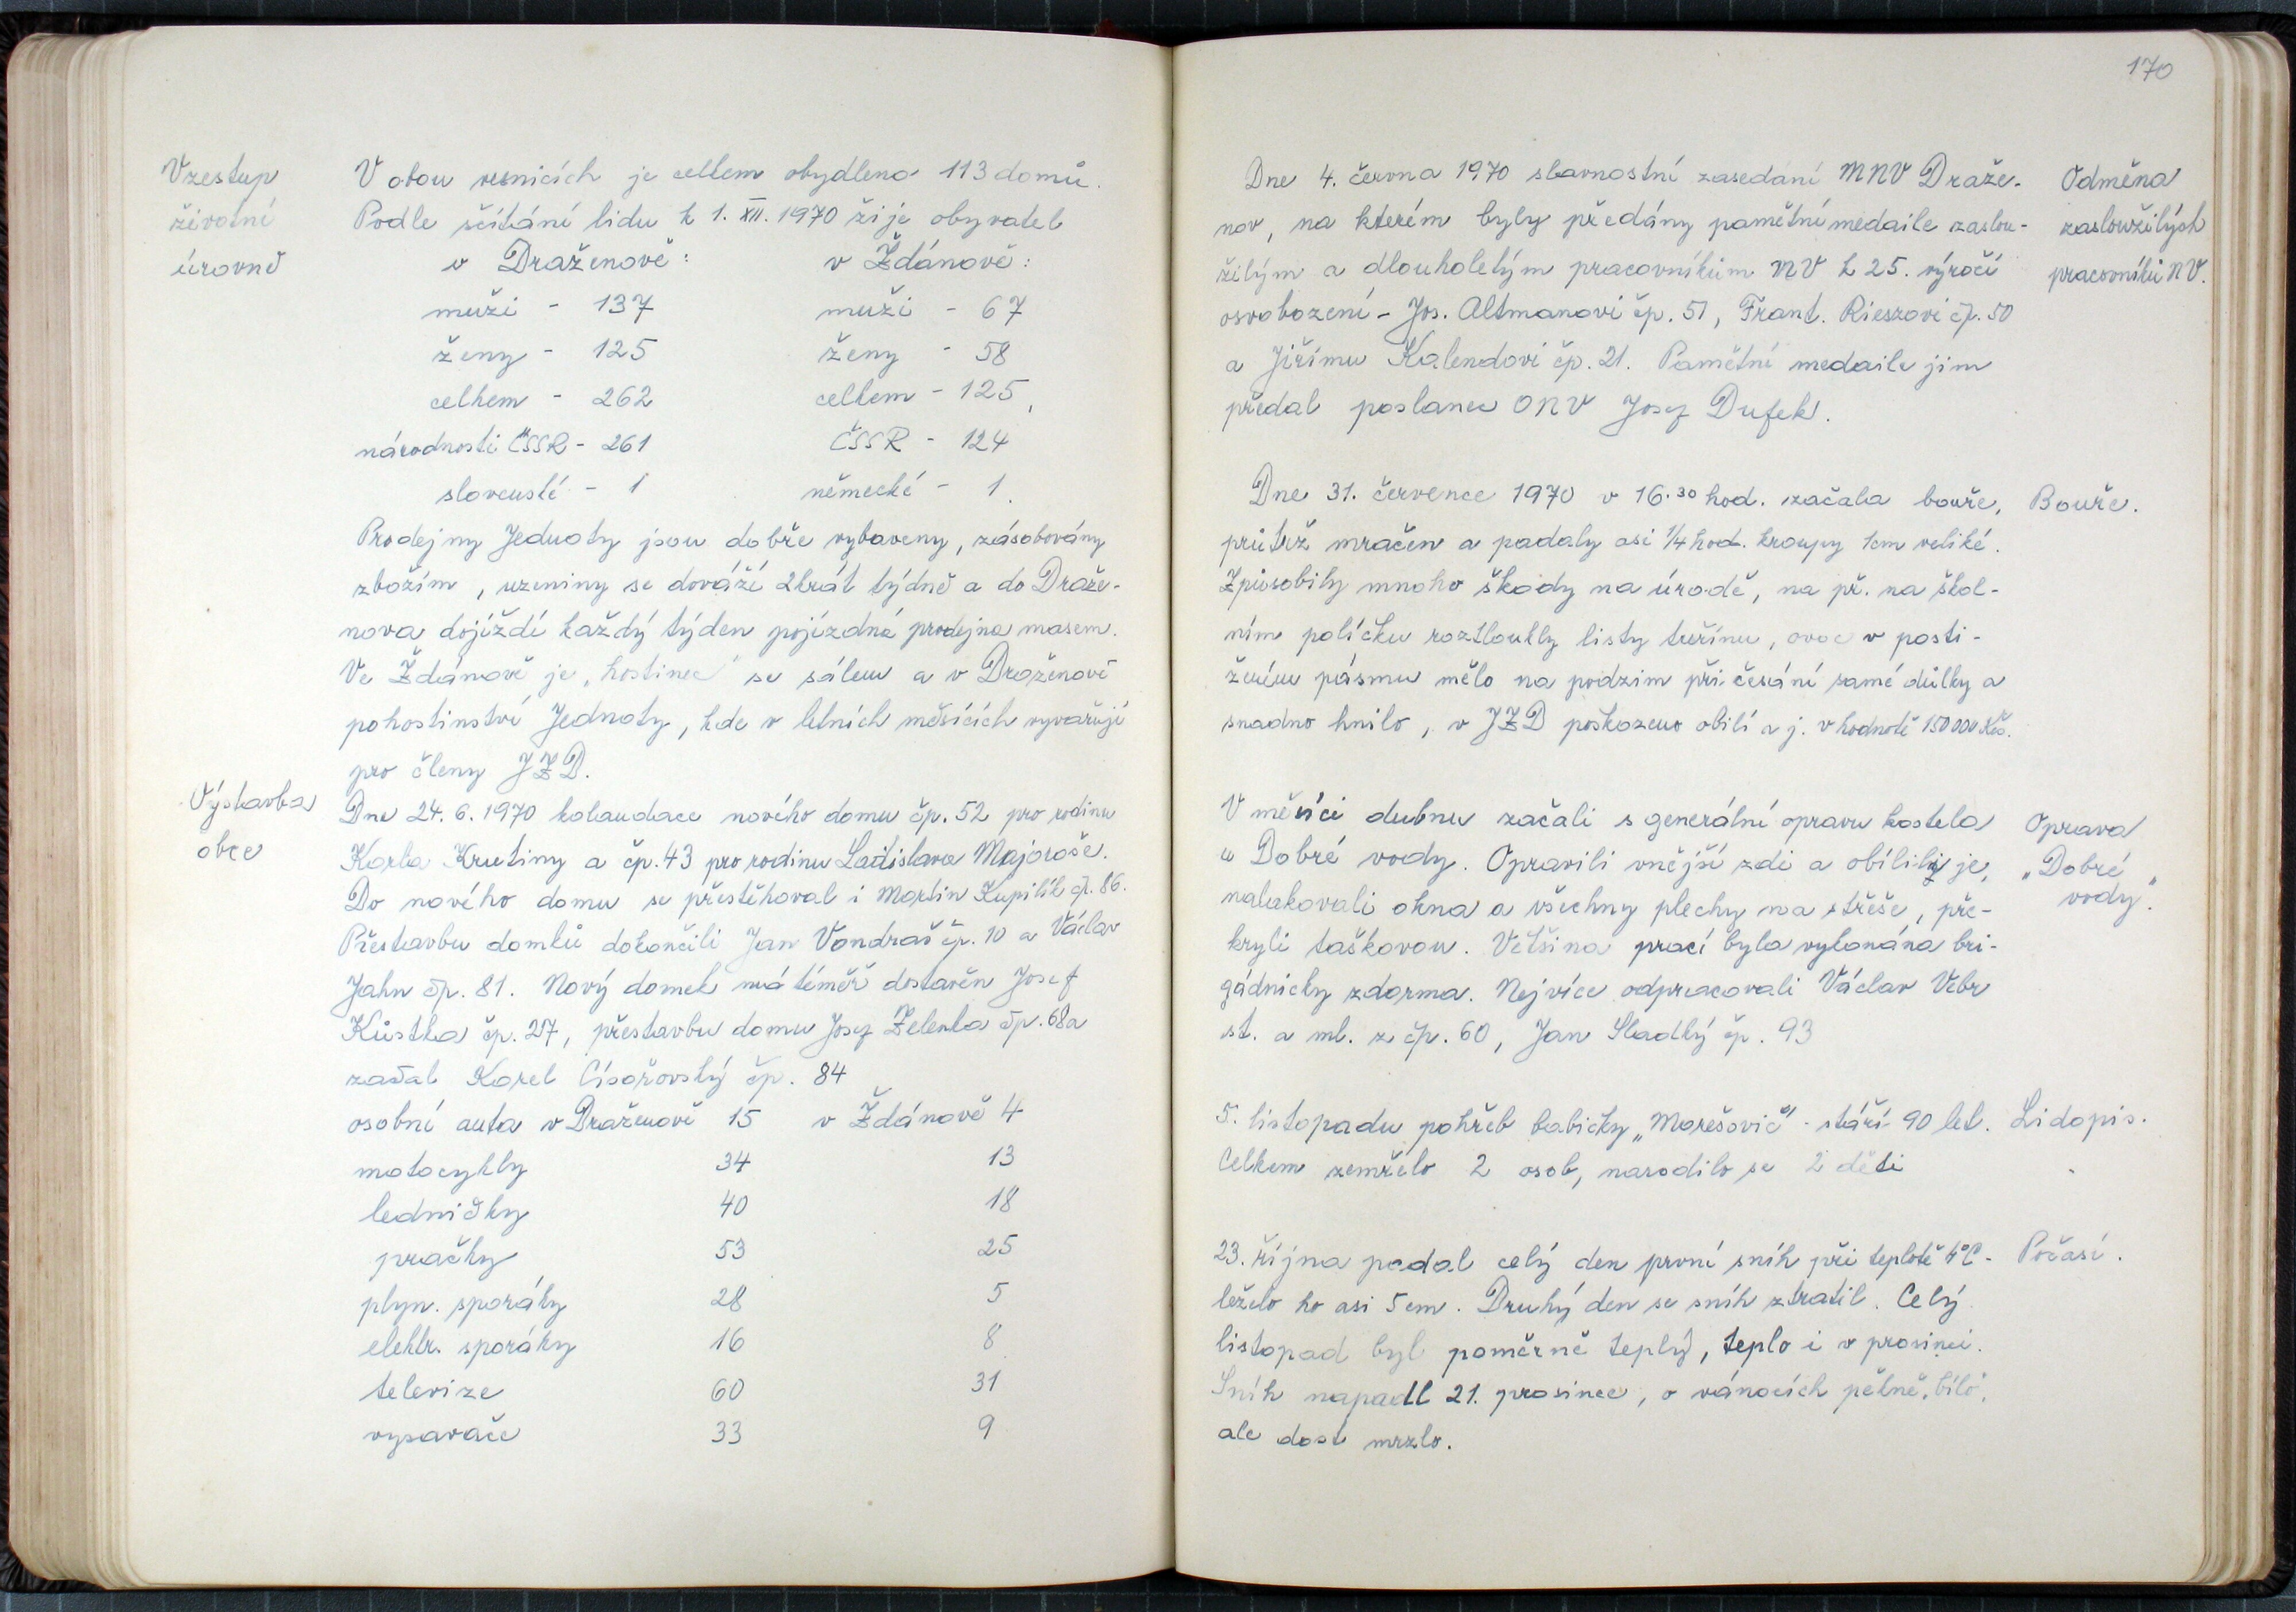 Vzestup
životní
úrovně
V obou vesnicích je celkem obydleno 113 domů.
Podle sčítání lidu k 1. XII. 1970 žije obyvatel
v Draženově: v Ždánově:
muži - 137 muži - 67
ženy - 125 ženy - 58
celkem - 262 celkem - 125,
národnosti ČSSR - 261 ČSSR - 124
slovenské - 1 německé - 1.
Prodejny Jednoty jsou dobře vybaveny, zásobovány
zbožím, uzeniny se dováží 2krát týdně a do Draže-
nova dojíždí každý týden pojízdná prodejna masem.
Ve Ždánově je „hostinec" se sálem a v Draženově
pohostinství Jednoty, kde v letních měsících vyvařují
pro členy JZD.
Výstavba
obce
Dne 24. 6. 1970 kolaudace nového domu čp. 52 pro rodinu
Karla Krutiny a čp. 43 pro rodinu Ladislava Majoroše.
Do nového domu se přestěhoval i Martin Kupilík čp. 86.
Přestavbu domků dokončili Jan Vondraš čp. 10 a Václav
Jahn čp. 81. Nový domek má téměř dostavěn Josef
Kůstka čp. 27, přestavbu domu Josef Zelenka čp. 68 a
začal Karel Císařovský čp. 84
osobní auta v Draženově 15 v Ždánově 4
motocykly 34 13
ledničky 40 18
pračky 53 25
plyn. sporáky 28 5
elektr. sporáky 16 8
televize 60 31
vysavače 33 9
170
Dne 4. června 1970 slavnostní zasedání MNV Draže-
nov, na kterém byly předány pamětní medaile zaslou-
žilým a dlouholetým pracovníkům NV k 25. výročí
osvobození - Jos. Altmanovi čp. 51, Frant. Rieszovi čp. 50
a Jiřímu Kalendovi čp. 21. Pamětní medaile jim
předal poslanec ONV Josef Dufek.
Odměna
zasloužilých
pracovníků NV.
Dne 31. července 1970 v 16.30 hod. začala bouře,
průtrž mračen a padaly asi 1/4 hod. kroupy 1cm veliké.
Způsobily mnoho škody na úrodě, na př. na škol-
ním políčku roztloukly listy tuřínu, ovoce v posti-
ženém pásmu mělo na podzim při česání samé důlky a
snadno hnilo, v JZD poškozeno obilí a j. v hodnotě 150 000 Kčs.
Bouře.
V měsíci dubnu začali s generální opravu kostela
u Dobré vody. Opravili vnější zdi a obílili je,
nalakovali okna a všechny plechy na střeše, pře-
kryli taškovou. Většina prací byla vykonána bri-
gádnicky zdarma. Nejvíce odpracovali Václav Vébr
st. a ml. z čp. 60, Jan Sladký čp. 93
Oprava
„Dobré
vody".
5. listopadu pohřeb babičky „Marešovic" - stáří 90 let.
Celkem zemřelo 2 osob, narodilo se 2 děti
Lidopis.
23. října padal celý den první sníh při teplotě 4°C -
leželo ho asi 5 cm. Druhý den se sníh ztratil. Celý
listopad byl poměrně teplý, teplo i v prosinci.
Sníh napadl 21. prosince, o vánocích pěkně „bílo",
ale dost mrzlo.
Počasí.